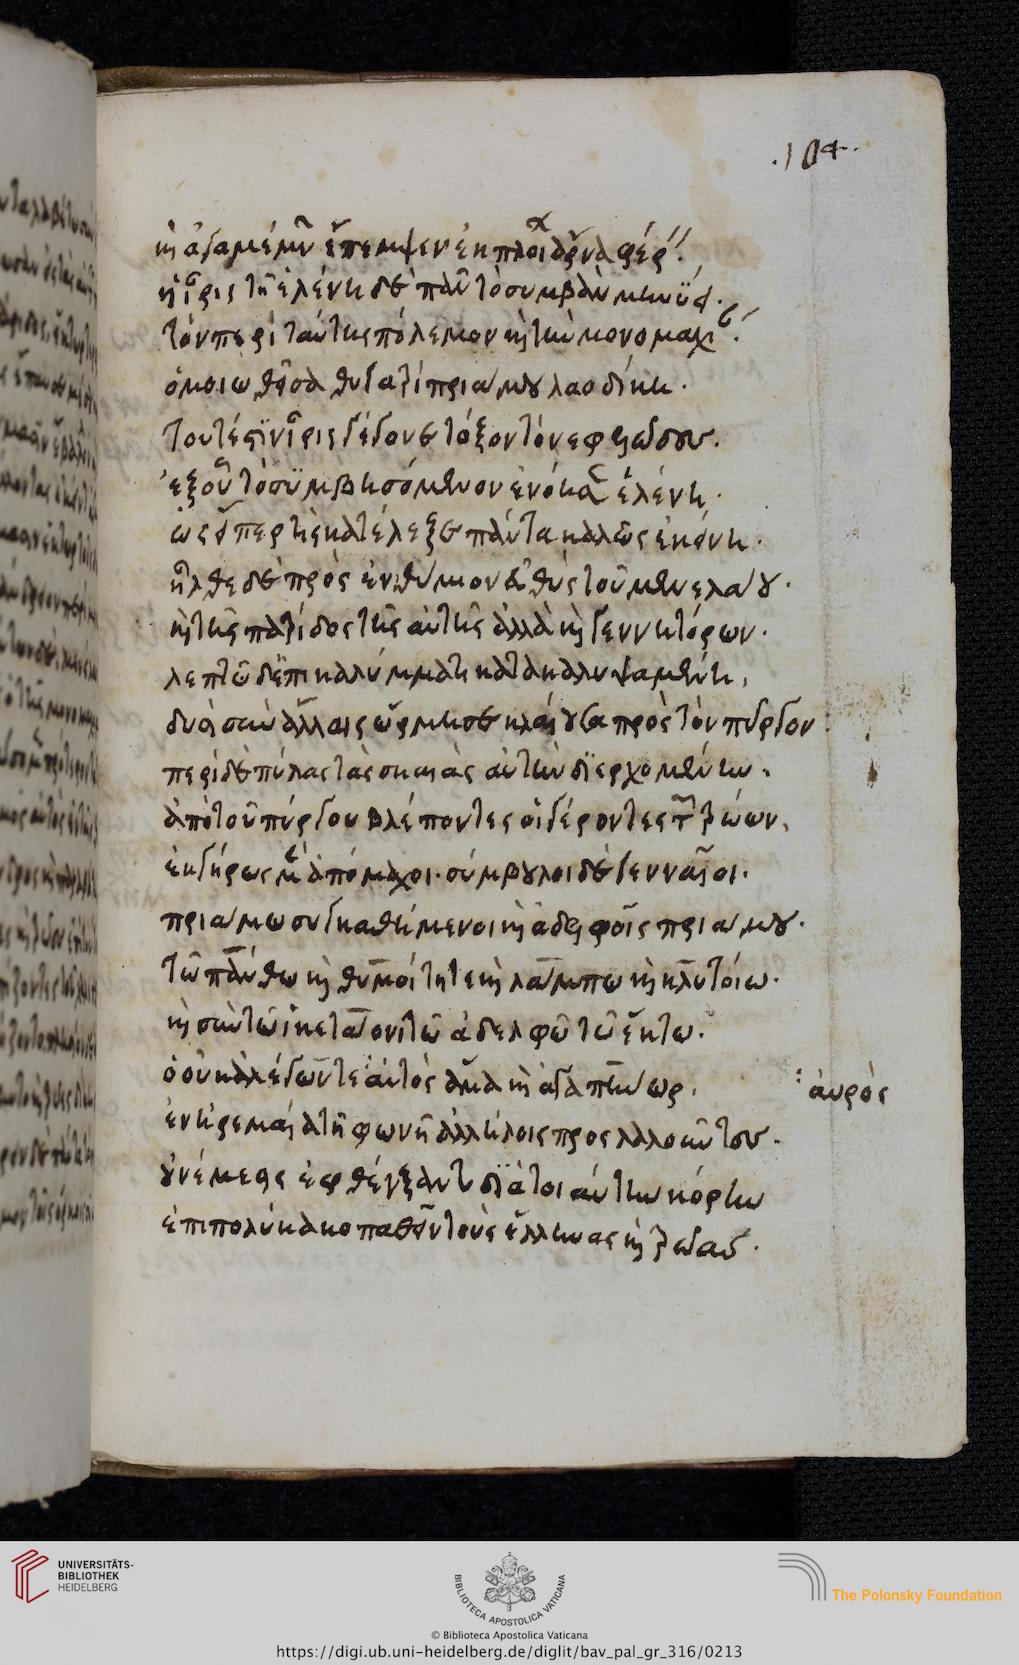 .104.
καὶ ἀγαμέμνων ἔπεμψεν ἐκ πλοίων ἄρνα φέρειν.
ἡ ἶρις τῇ ἑλένῃ δὲ πᾶν τὸ συμβὰν μηνύει.
τὸν περὶ ταύτης πόλεμον καὶ τὴν μονομαχίαν.
ὁμοιωθεῖσα θυγατρὶ πριάμου λαοδίκῃ.
τουτέστιν ἶρις γέγονε τόξον τὸ νεφελῶδες.
ἐξ οὗ τὸ συμβησόμενον ἐνόησεν ἑλένη.
ὥσπερ τις κατέλεξε πάντα καλῶς ἐκείνῃ.
ἦλθε δὲ πρὸς ἐνθύμιον εὐθὺς τοῦ μενελάου.
καὶ τῆς πατρίδος τῆς αὐτῆς ἀλλὰ καὶ γεννητόρων.
λεπτῷ δ' ἐπικαλύμματι κατακαλυψαμένη,
δυσὶ σὺν ἄλλαις ὥρμησε κλαίουσα πρὸς τὸν πύργον.
περὶ δὲ πύλας τὰς σκαιὰς αὐτὴν διερχομένην.
ἀπὸ τοῦ πύργου βλέποντες οἱ γέροντες τῶν τρώων.
ἐκ γήρως μὲν ἀπόμαχοι. σύμβουλοι δὲ γενναῖοι.
πριάμω συγκαθήμενοι καὶ ἀδελφοῖς πριάμου.
τῷ πάνθω καὶ θυμοίτῃ τε καὶ λάμπω καὶ κλυτίω.
καὶ σὺν τῷ ἱκετάονι τῷ ἀδελφῷ τῷ ἕκτω.
ὁ οὐκαλέγων τε αὐτὸς ἅμα καὶ ἀγαπήνωρ.
: ἀυρὸς
ἐν ἠρεμαίᾳ τῇ φωνῇ ἀλλήλοις προσλαλοῦντες.
οὐ νέμεσις ἐφθέγξαντο διὰ τοιαύτην κόρην
ἐπιπολὺ κακοπαθεῖν τοὺς ἕλληνας καὶ τρῶας.
UNIVERSITÄTS-
BIBLIOTHEK
HEIDELBERG
BIBLIOTECA APOSTOLICA VATICANA
The Polonsky Foundation
© Biblioteca Apostolica Vaticana
https://digi.ub.uni-heidelberg.de/diglit/bav_pal_gr_316/0213